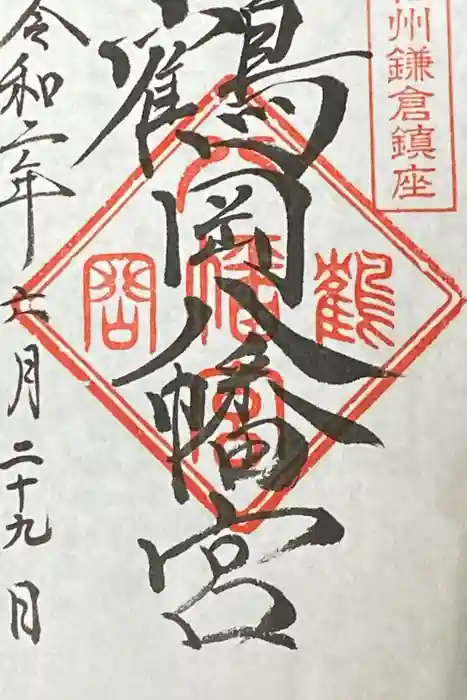 相州鎌倉鎮座
鶴岡八幡宮
鶴
岡
八
幡
宮
令和二年六月二十九日